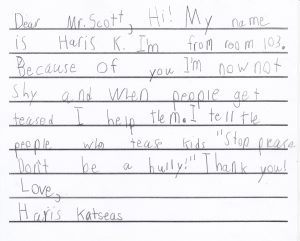 Dear Mr. Scott, Hi! My name
is Haris K. I'm from room 103.
Because of you I'm now not
shy and when people get
teased I help tlem. I tell tle
people who tease kids "Stop please
Don't be a bully!" Thank you!
Love,
Haris Katseas